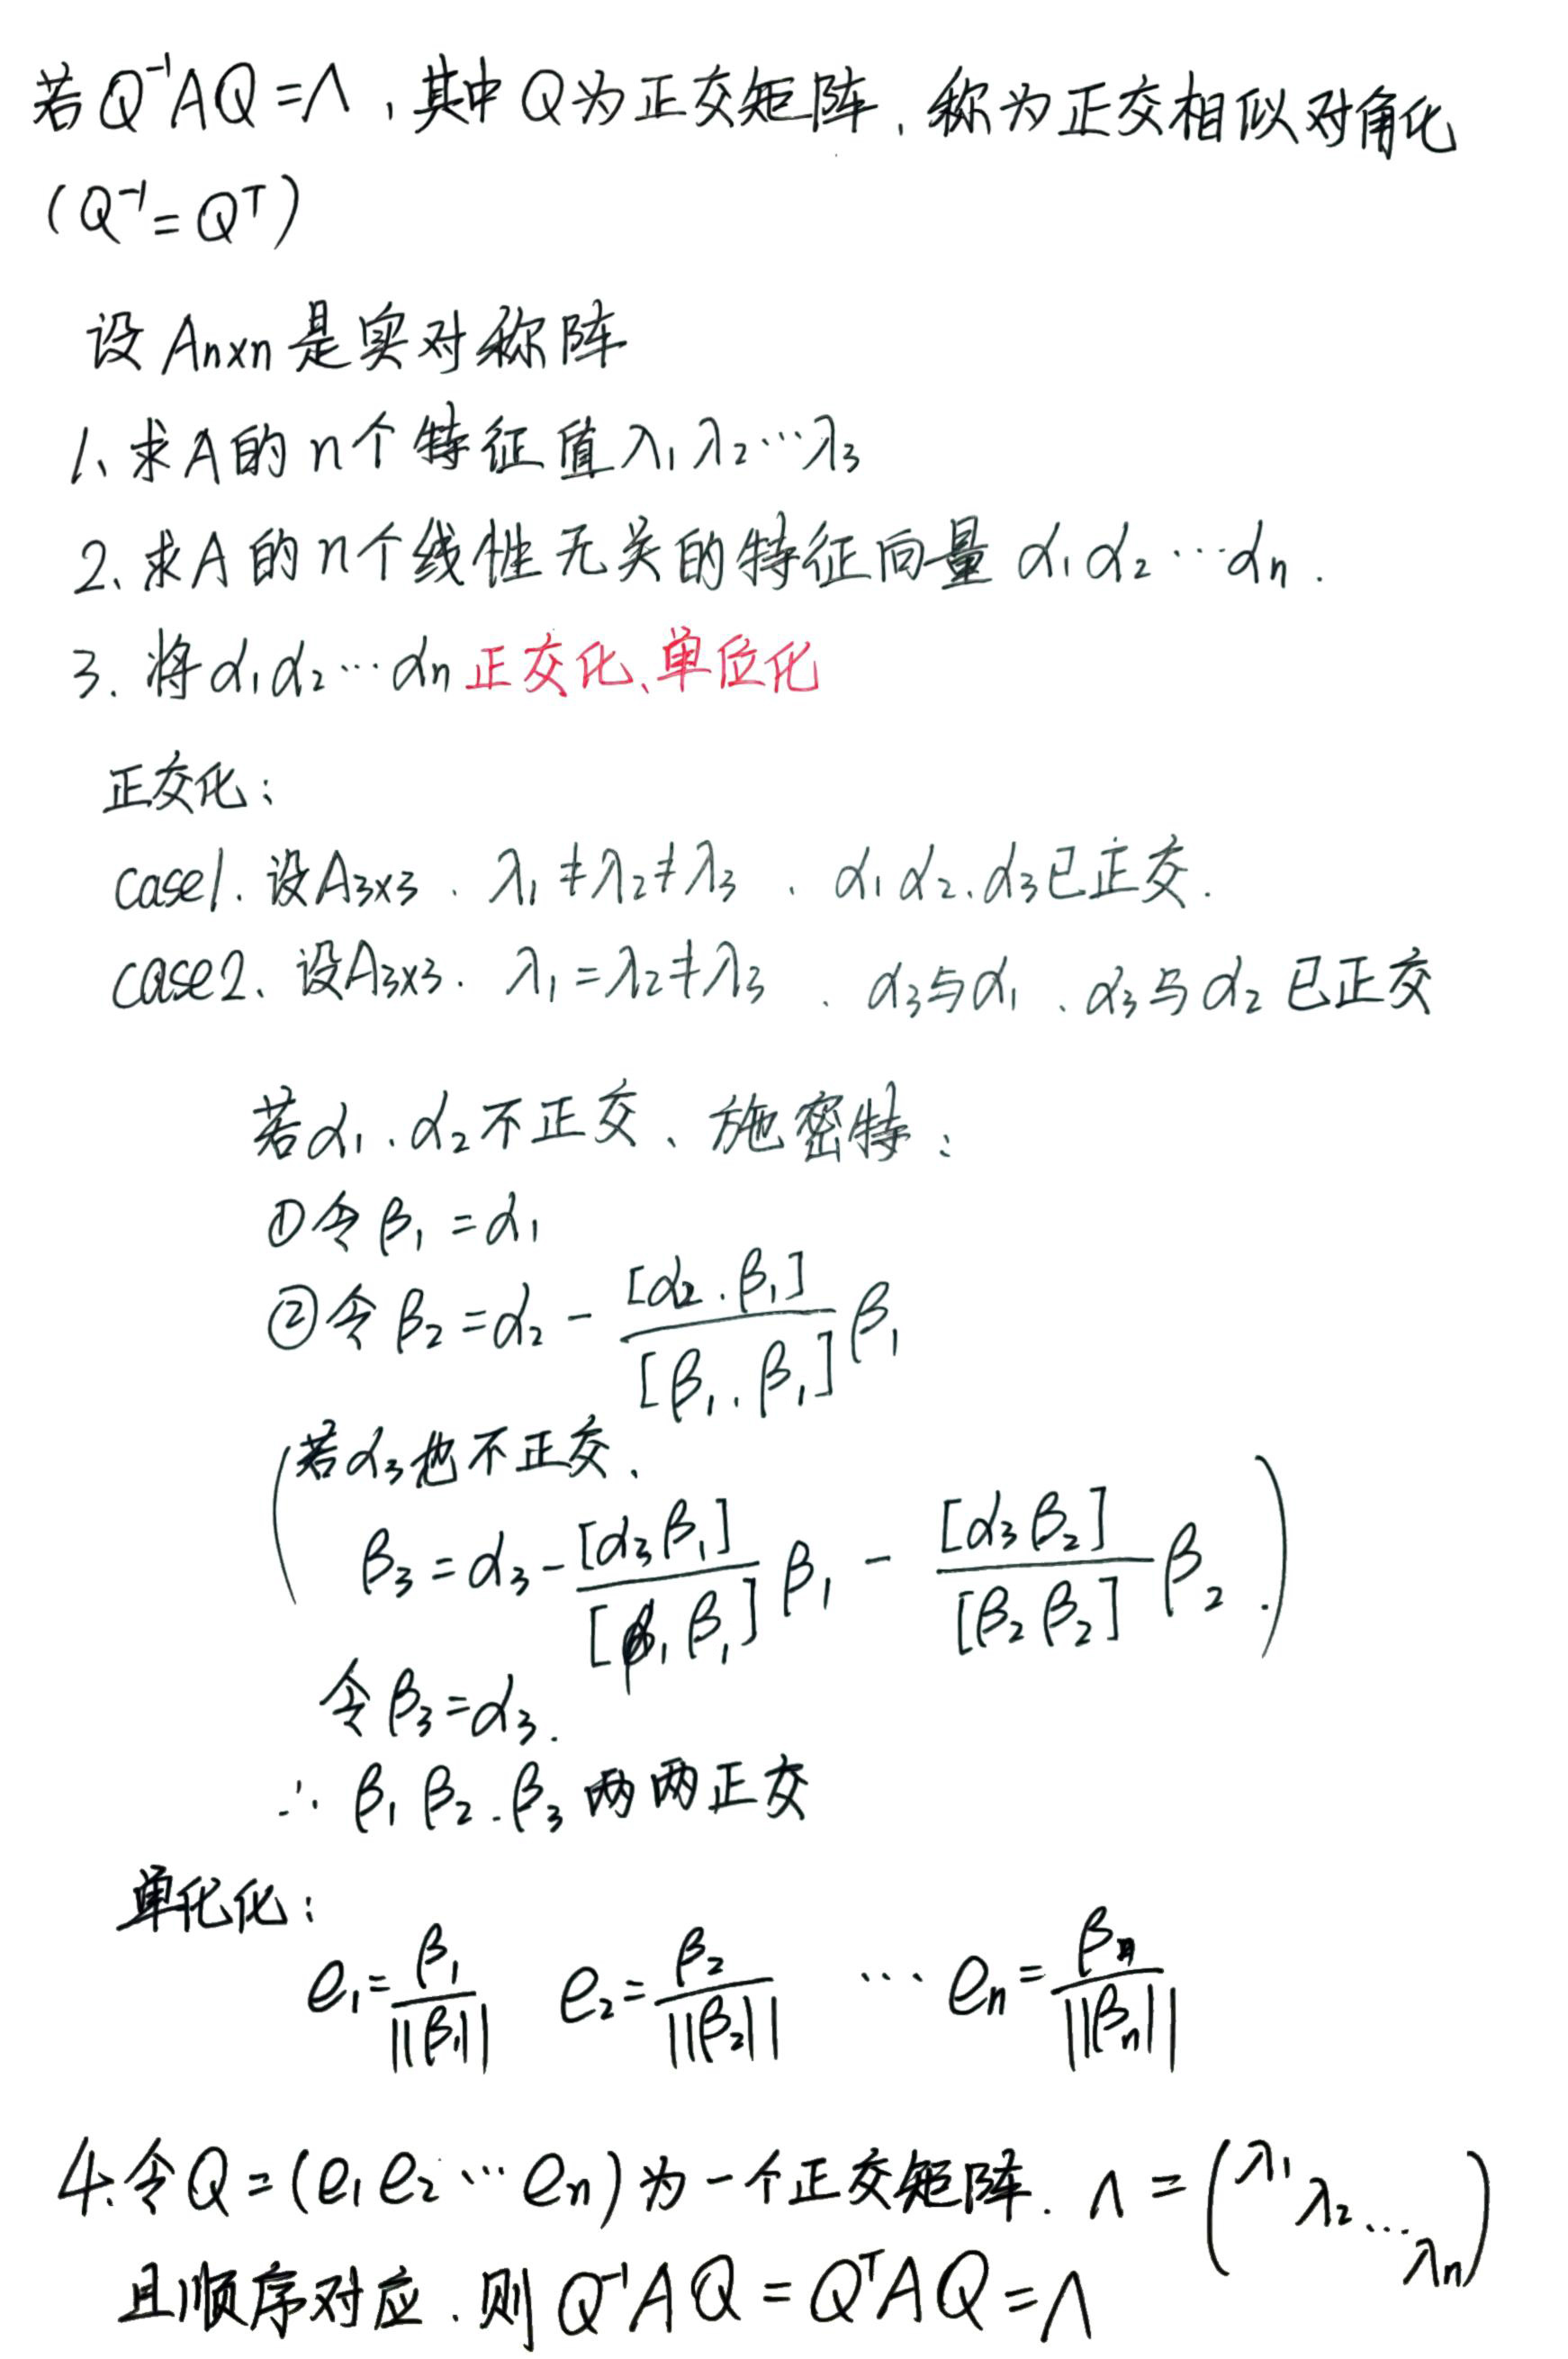 若 Q⁻¹AQ = Λ, 其中 Q 为正交矩阵, 称为正交相似对角化
(Q⁻¹ = Qᵀ)
设 Aₙₓₙ 是实对称阵
1、求A的 n个特征值 λ₁ λ₂ ⋯ λ₃
2、求A的n个线性无关的特征向量 α₁ α₂ ⋯ αₙ.
3. 将 α₁ α₂ ⋯ αₙ 正交化、单位化
正交化:
case1. 设A₃ₓ₃. λ₁ ≠ λ₂ ≠ λ₃ . α₁ α₂. α₃已正交.
case2. 设A₃ₓ₃. λ₁ = λ₂ ≠ λ₃ . α₃与α₁ 、α₃与α₂ 已正交
若α₁. α₂不正交、施密特:
①令 β₁ = α₁
②令 β₂ = α₂ - [α₂. β₁]/[β₁. β₁] β₁
(若α₃也不正交.
β₃ = α₃ - [α₃ β₁]/[β₁ β₁] β₁ - [α₃ β₂]/[β₂ β₂] β₂.)
令 β₃ = α₃.
∴ β₁ β₂. β₃ 两两正交
单化化:
e₁ = β₁/||β₁|| e₂ = β₂/||β₂|| ⋯ eₙ = βₙ/||βₙ||
4.令Q = (e₁ e₂ ⋯ eₙ)为一个正交矩阵. Λ = (λ₁ λ₂ ⋯ λₙ)
且顺序对应. 则 Q⁻¹AQ = QᵀAQ = Λ